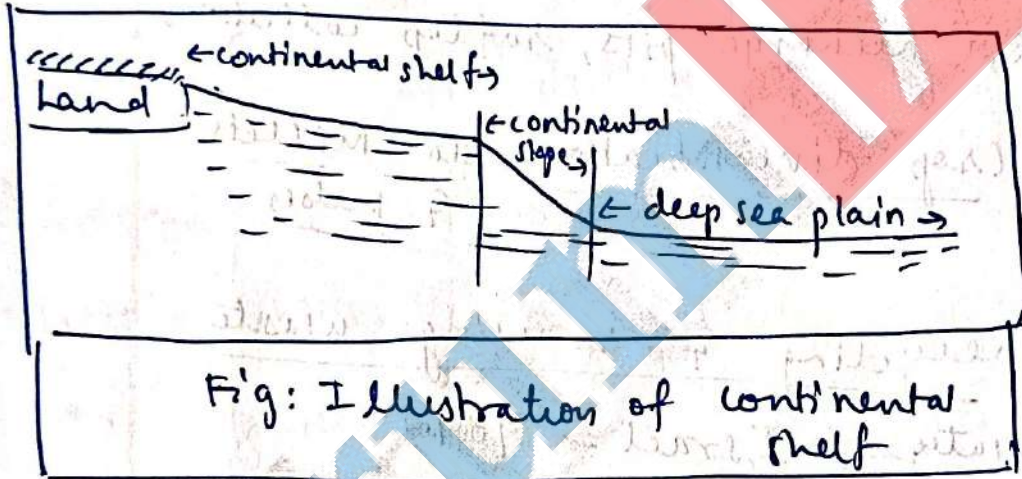 ←continental shelf→
Land
←continental
slope→
← deep sea plain →
Fig: Illustration of continental
shelf